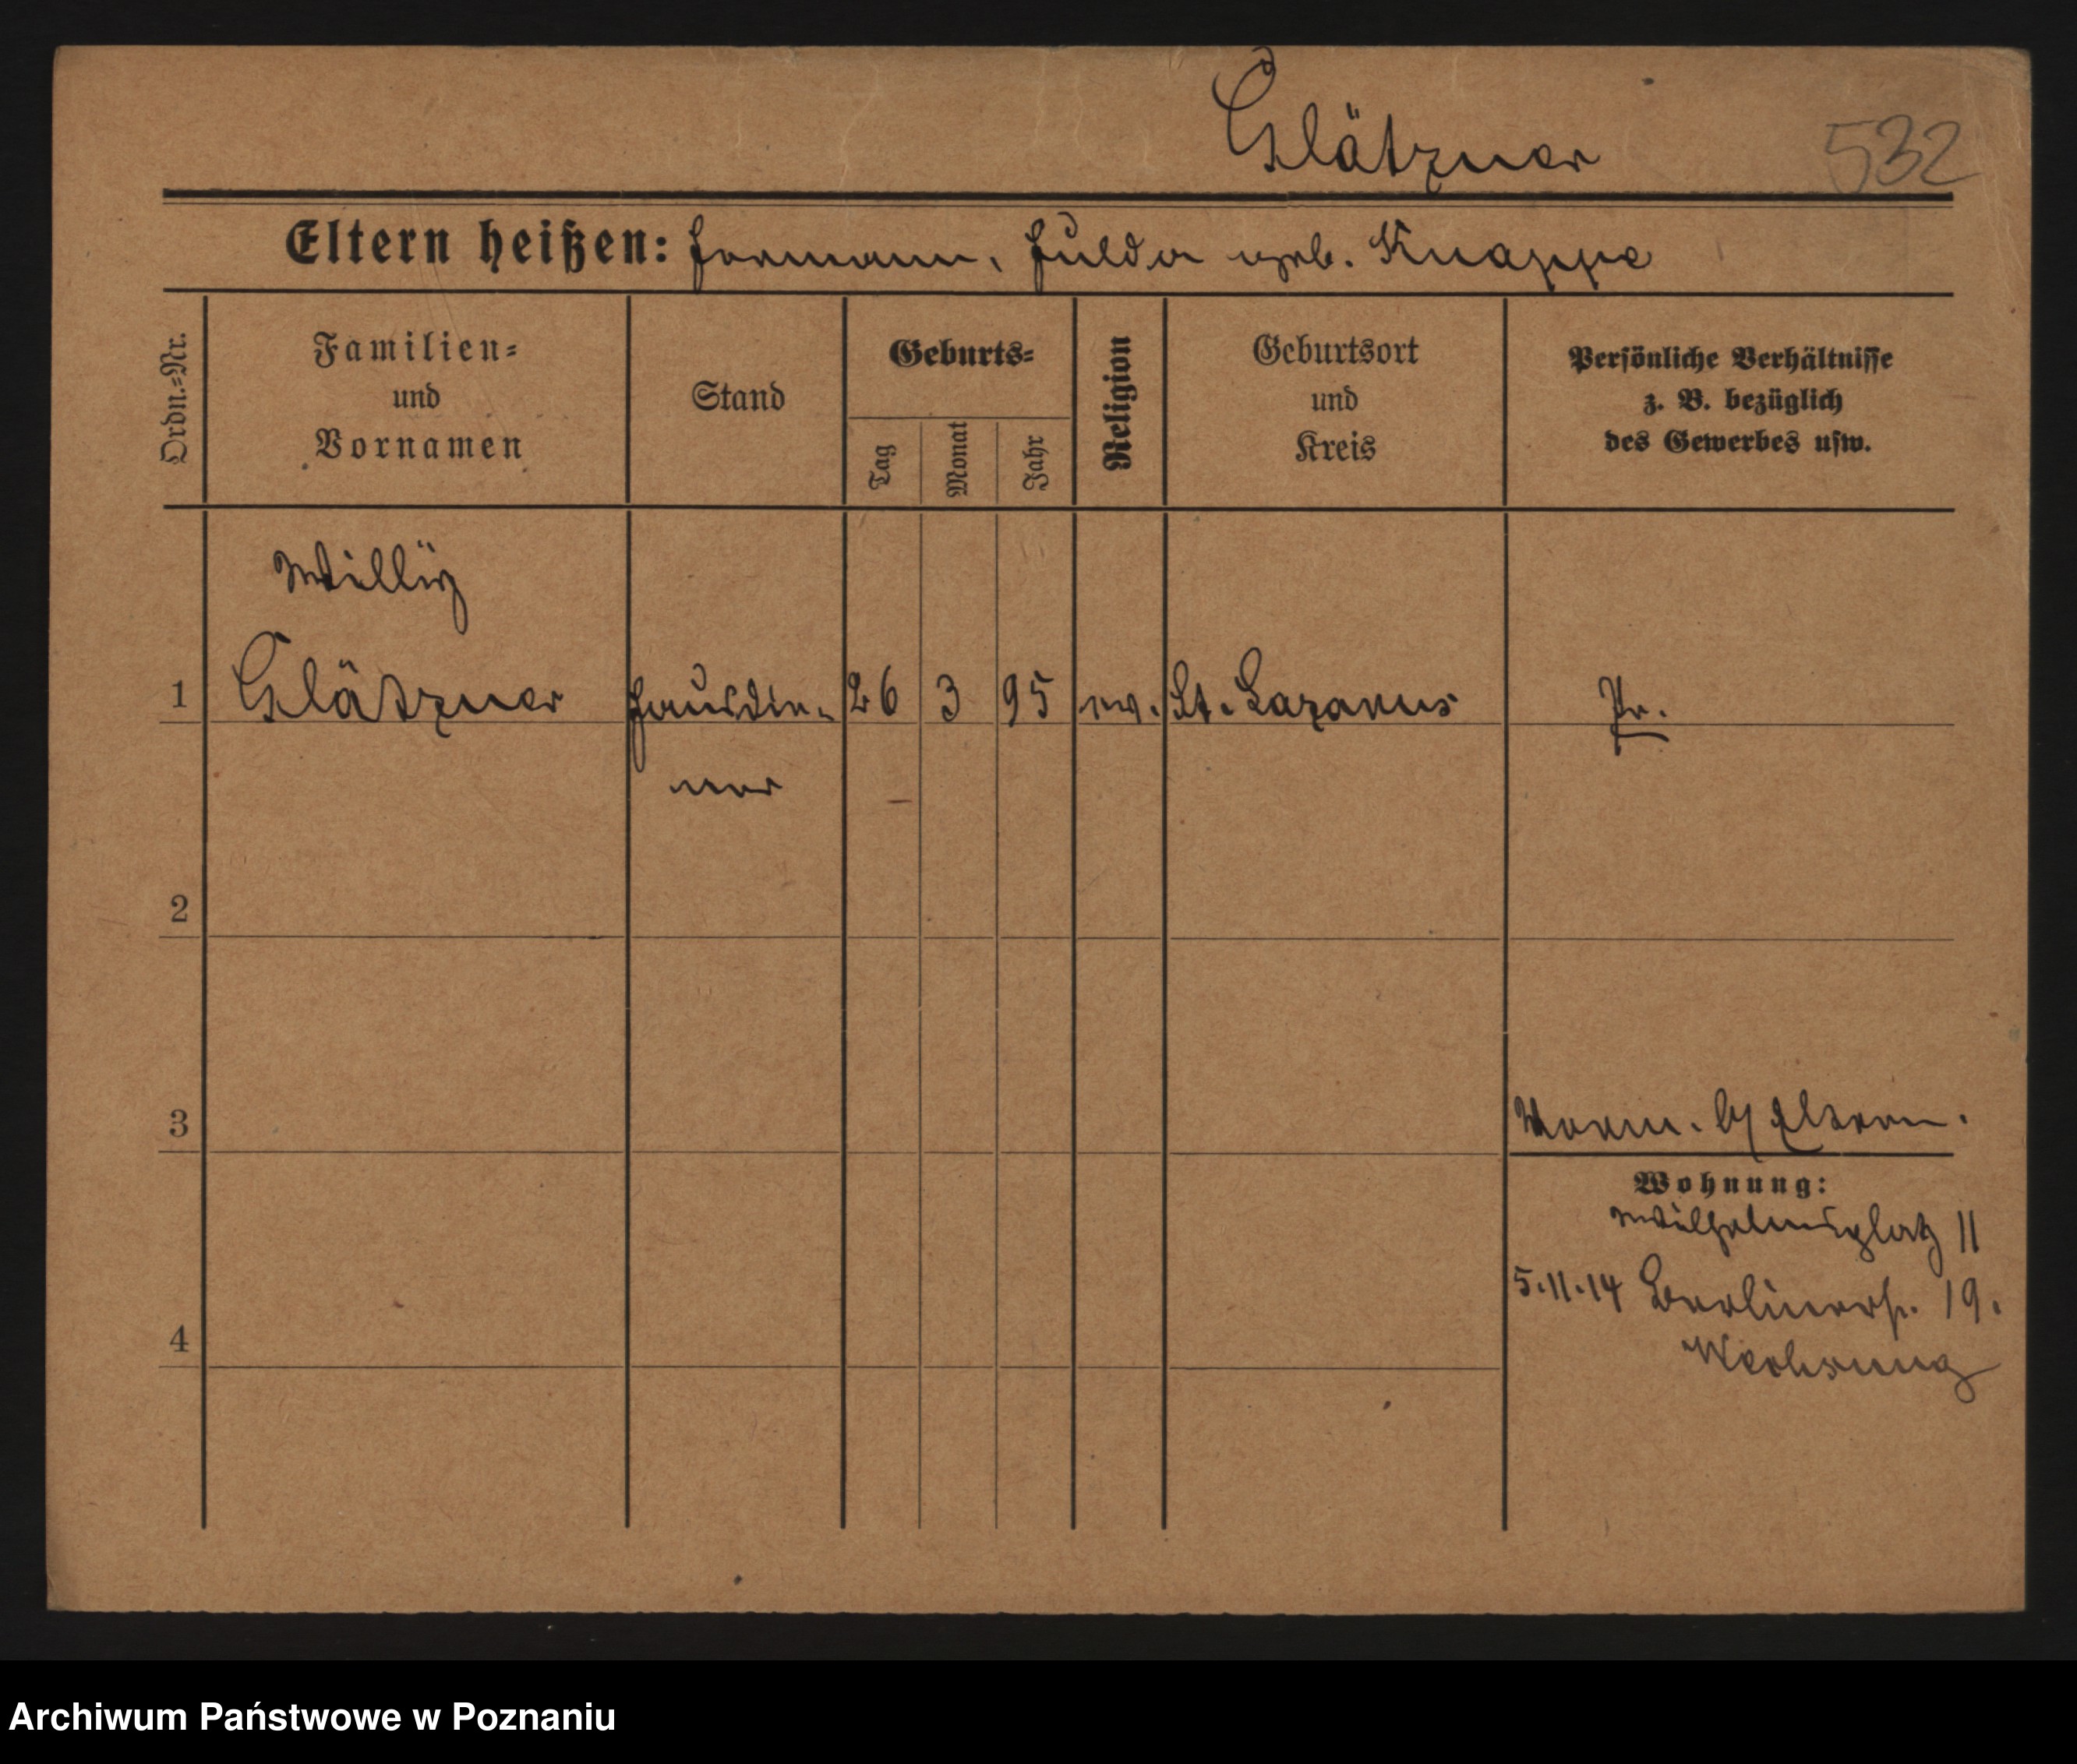 Glätzner
532
Eltern heißen: Hermann, Hulda geb. Knappe
Ordn.=Nr.
Familien=
und
Vornamen
Stand
Geburts=
Tag
Monat
Jahr
Religion
Geburtsort
und
Kreis
Persönliche Verhältnisse
z. B. bezüglich
des Gewerbes usw.
Willy
1 Glätzner Hausdie- 26 3 95 ev. St. Lazarus Pr.
ner
2
3
Verm. b/ Eltern.
Wohnung:
Wilhelmsplatz 11
5.11.14 Berlinerstr. 19.
4
Archiwum Państwowe w Poznaniu